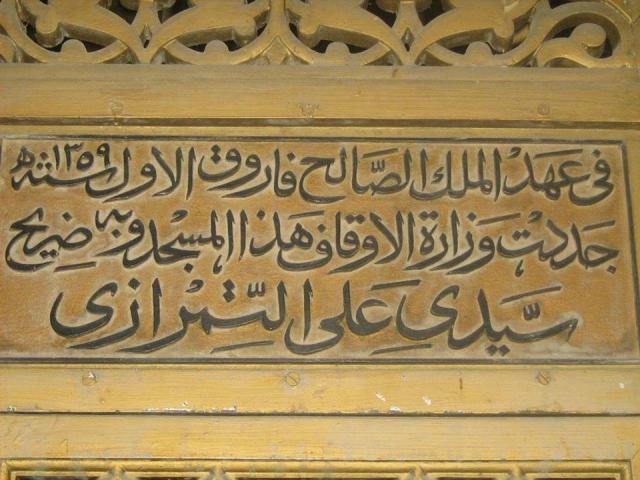 في عهد الملك الصالح فاروق الاول سنة ١٣٥٩ ه
جددت وزارة الاوقاف هذا المسجد وبه ضريح
سيدي علي التمرازي